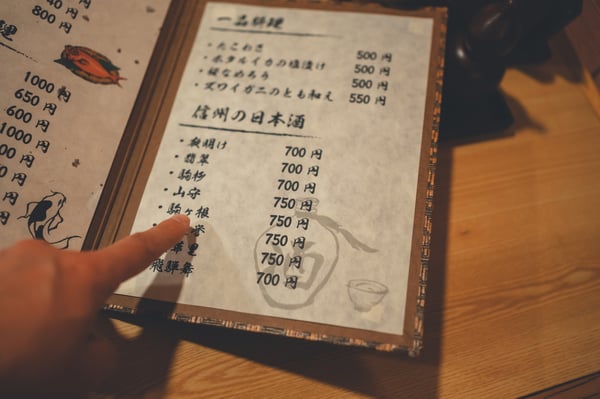 40円
800円
理
1000円
650円
600円
1000円
00円
0円
円
円
一品料理
・たこわさ 500円
・ホタルイカの塩漬け 500円
・桜なめろう 500円
・ズワイガニのとも和え 550円
信州の日本酒
・夜明け 700円
・翡翠 700円
・駒杉 700円
・山守 750円
・駒ヶ根 750円
誉 750円
華里 750円
飛騨舞 700円
酒